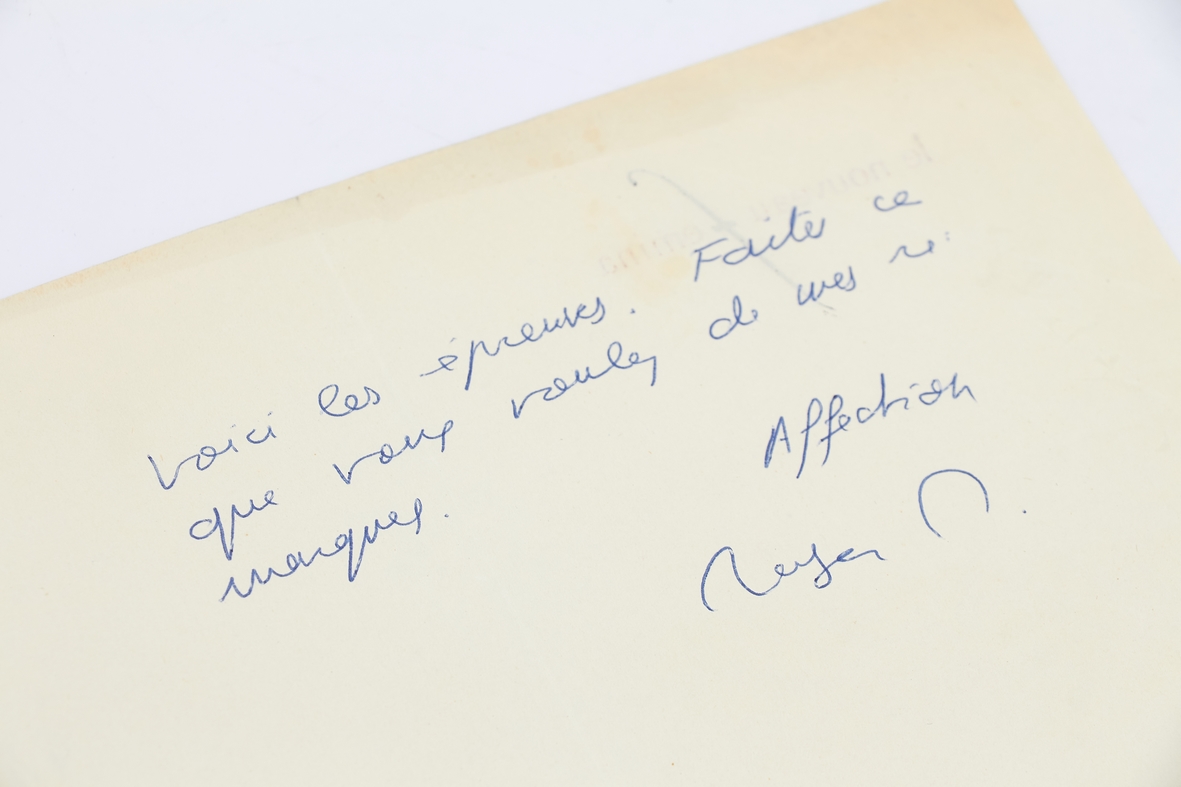 Voici les épreuves. Faites ce
que vous voulez de mes re-
marques.
Affection
Roger